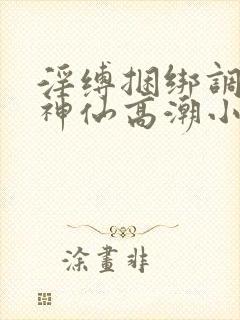 淫缚捆绑調
神仙高潮小
涂畫非